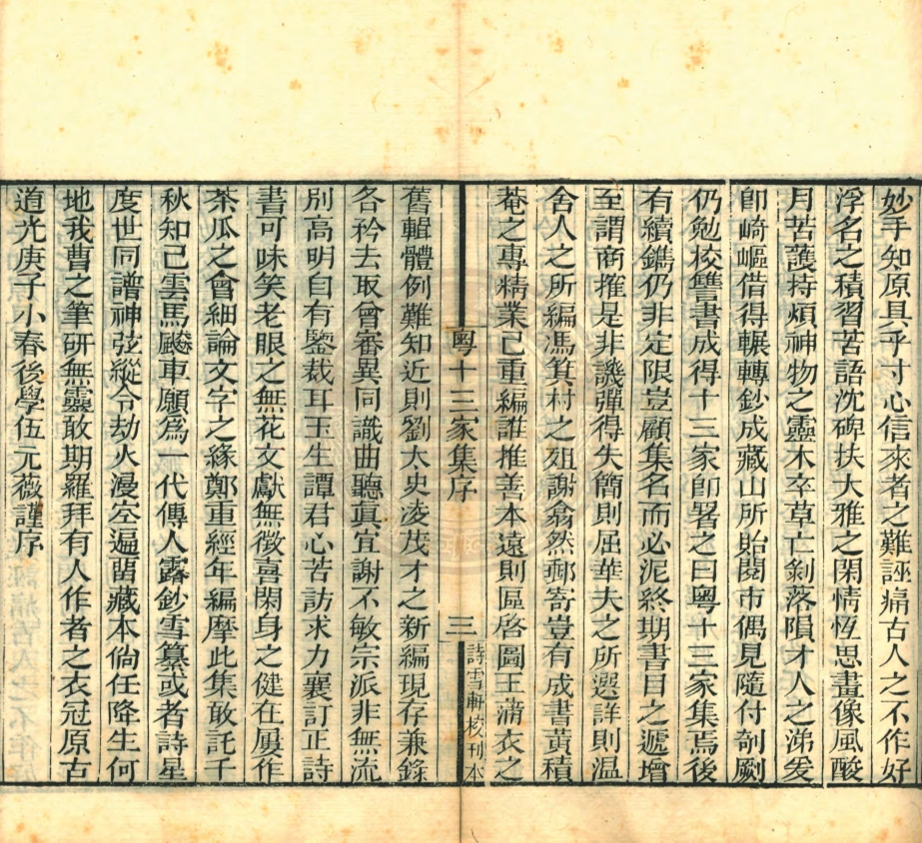 妙手知原具乎寸心信來者之難誣痛古人之不作好
浮名之積習苦語沈碑扶大雅之閑情恆思畫像風酸
月苦護持煩神物之靈木卒草亡剝落隕才人之涕爰
卽崎嶇借得輾轉鈔成藏山所貽閱市偶見隨付剞劂
仍勉校讐書成得十三家卽署之曰粵十三家集焉後
有續鐫仍非定限豈顧集名而必泥終期書目之遞增
至謂商搉是非譏彈得失簡則屈華夫之所選詳則温
舍人之所編馮箕村之殂謝翕然郵寄豈有成書黃積
菴之專精業已重編誰推善本遠則區啓圖王蒲衣之
粵十三家集序 三 詩雪軒校刊本
舊輯體例難知近則劉太史凌茂才之新編現存兼錄
各矜去取曾畨異同識曲聽眞宜謝不敏宗派非無流
別高明自有鑒裁耳玉生譚君心苦訪求力襄訂正詩
書可味笑老眼之無花文獻無徵喜閑身之健在屢作
茶瓜之會細論文字之緣鄭重經年編摩此集敢託千
秋知己雲馬飈車願爲一代傳人露鈔雪纂或者詩星
度世同譜神弦縱令劫火漫空遍留藏本倘任降生何
地我曹之筆研無靈敢期羅拜有人作者之衣冠原古
道光庚子小春後學伍元薇謹序